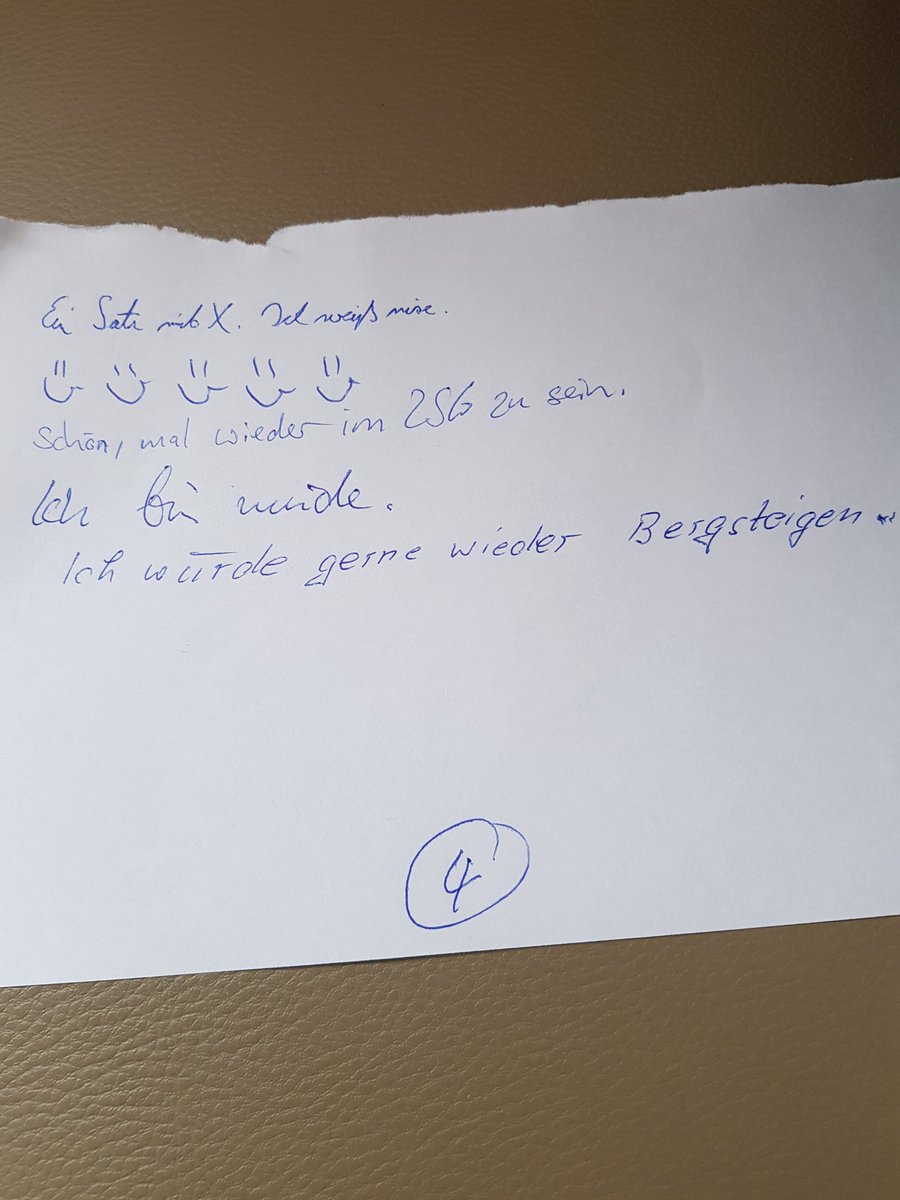 Ein Satz mit X. Ich weiß nixe.
Schön, mal wieder im ZSb zu sein.
Ich bin müde.
Ich würde gerne wieder Bergsteigen...
4